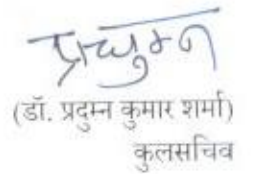 प्रद्युम्न
(डॉ. प्रदुम्न कुमार शर्मा)
कुलसचिव